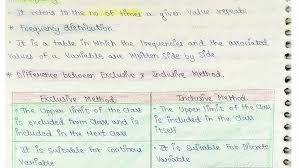 Frequency
* It refers to the no. of times a given value repeats
* Frequency distribution
• It is a table in which the frequencies and the associated
values of a variable are written side by side
* Difference between Exclusive & Inclusive Method.
Exclusive Method
• The upper limit of the class
is excluded from class and is
included in the Next class
• It is suitable for continuous
Variable
Inclusive Method
• The Upper limit of the class
is included in the class
itself
• It is suitable for Discrete
Variable